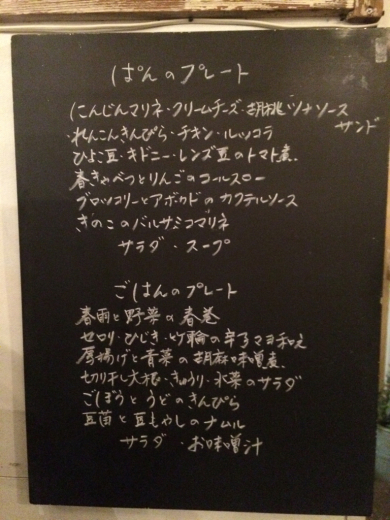 ぱんのプレート
にんじんマリネ・クリームチーズ・胡桃ツナソース
サンド
・れんこんきんぴら・チキン・ルッコラ
ひよこ豆・キドニー・レンズ豆のトマト煮。
春きゃべつとりんごのコールスロー
ブロッコリーとアボカドのカクテルソース
きのこのバルサミコマリネ
サラダ・スープ
ごはんのプレート
春雨と野菜の春巻
セロリ・ひじき・竹輪の辛子マヨ和え
厚揚げと青菜の胡麻味噌煮。
切り干し大根・きゅうり・水菜のサラダ
ごぼうとうどのきんぴら
豆苗と豆もやしのナムル
サラダ・お味噌汁